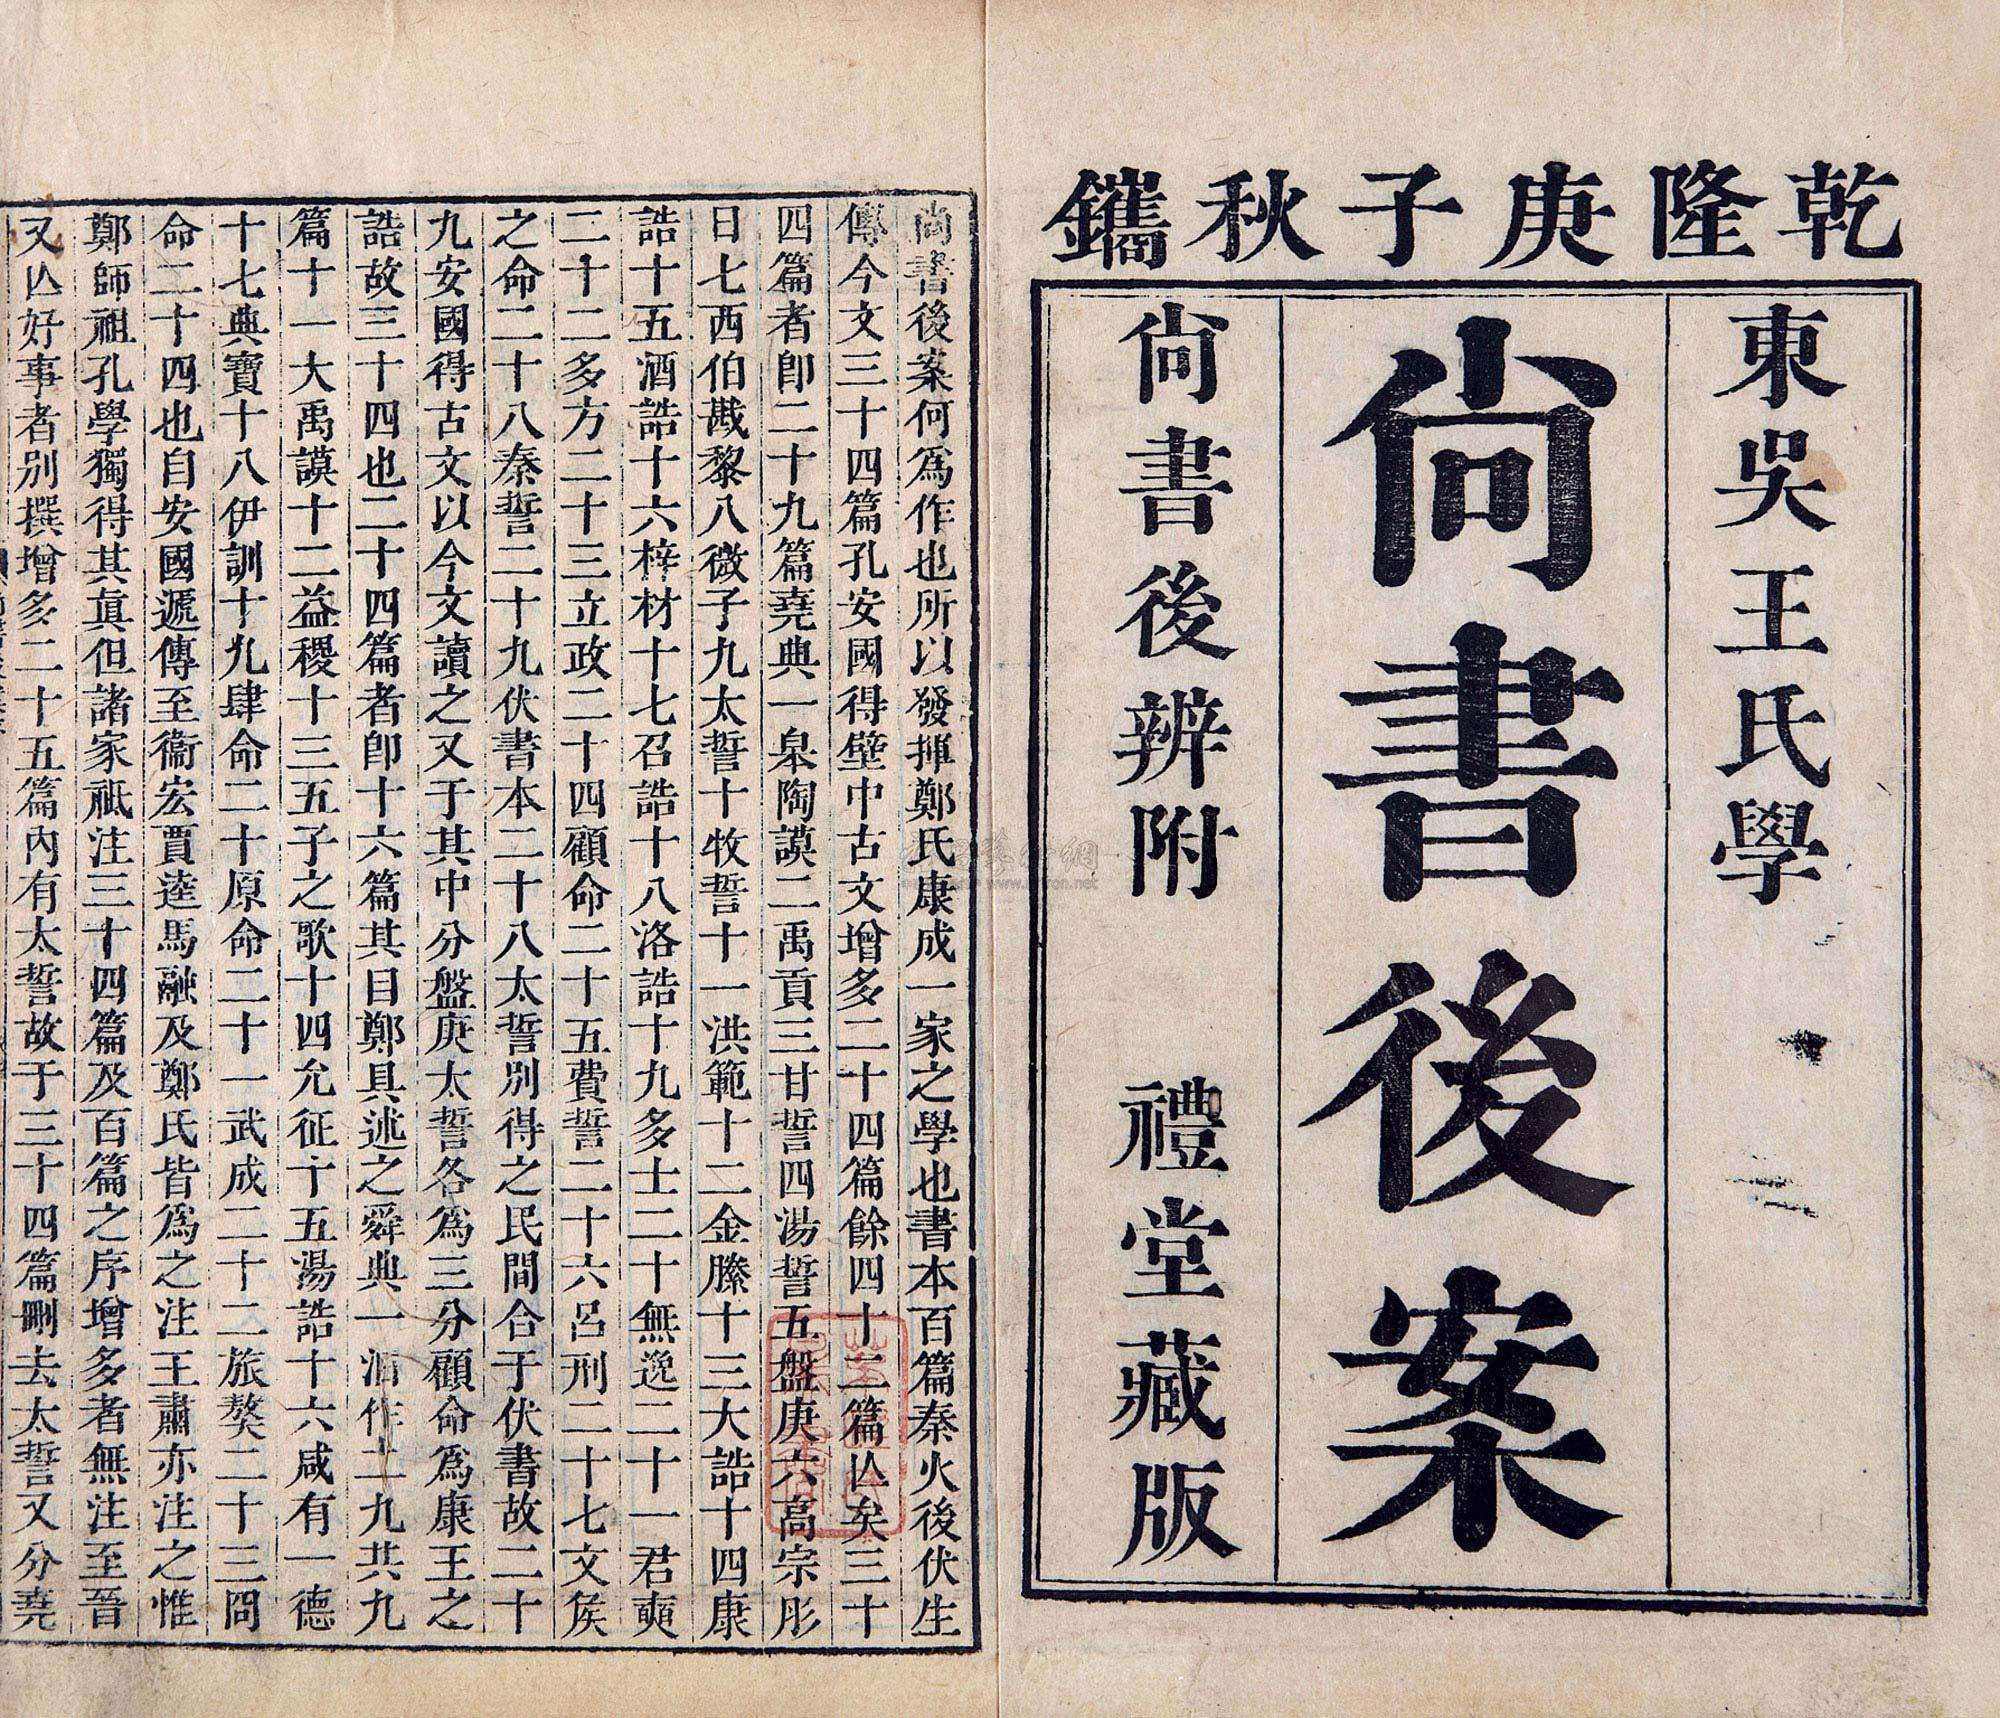 乾隆庚子秋鐫
東吳王氏學
尚書後案
尚書後辨附 禮堂藏版
尚書後案何爲作也所以發揮鄭氏康成一家之學也書本百篇秦火後伏生
傳今文三十四篇孔安國得壁中古文增多二十四篇餘四十二篇亾矣三十
四篇者卽二十九篇堯典一皋陶謨二禹貢三甘誓四湯誓五盤庚六高宗肜
日七西伯戡黎八微子九太誓十牧誓十一洪範十二金縢十三大誥十四康
誥十五酒誥十六梓材十七召誥十八洛誥十九多士二十無逸二十一君奭
二十二多方二十三立政二十四顧命二十五費誓二十六呂刑二十七文侯
之命二十八秦誓二十九伏書本二十八太誓別得之民間合于伏書故二十
九安國得古文以今文讀之又于其中分盤庚太誓各爲三分顧命爲康王之
誥故三十四也二十四篇者卽十六篇其目鄭具述之舜典一汩作二九共九
篇十一大禹謨十二益稷十三五子之歌十四允征十五湯誥十六咸有一德
十七典寶十八伊訓十九肆命二十原命二十一武成二十二旅獒二十三冏
命二十四也自安國遞傳至衞宏賈逵馬融及鄭氏皆爲之注王肅亦注之惟
鄭師祖孔學獨得其眞但諸家祇注三十四篇及百篇之序增多者無注至晉
又亾好事者別撰增多二十五篇內有太誓故于三十四篇刪去太誓又分堯